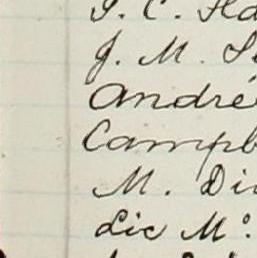 J. C. Ha
J. M. S
André
Campb
M. Di
Lic Mº.